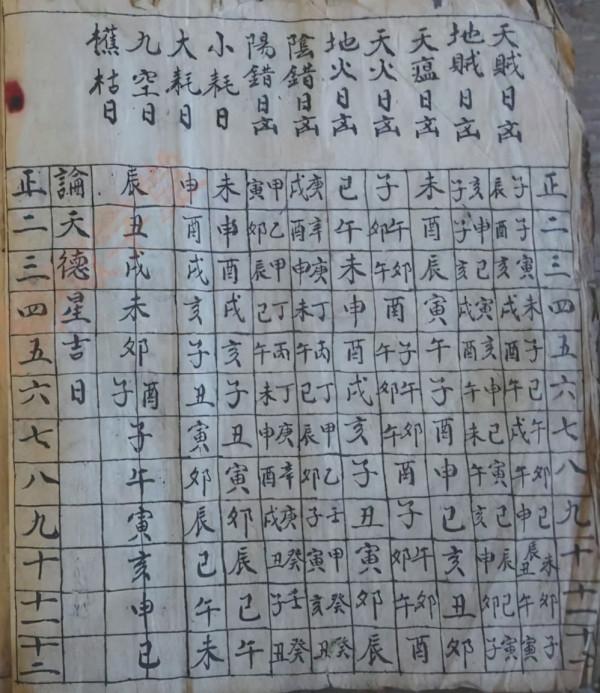 天賊日㐫
地賊日㐫
天瘟日㐫
天火日㐫
地火日㐫
陰錯日㐫
陽錯日㐫
小耗日
大耗日
九空日
樵枯日
正 子 辰 亥 子 未 子 巳 庚戌 甲寅 未 申 辰 論 正
二 子 酉 申 子 酉 午卯 午 辛酉 乙卯 申 酉 丑 天 二
三 寅 亥 巳 亥 辰 卯午 未 庚申 甲辰 酉 戌 戌 德 三
四 未 戌 寅 戌 寅 酉 申 丁未 丁巳 戌 亥 未 星 四
五 子 酉 亥 酉 午 子午 酉 丙午 丙午 亥 子 卯 吉 五
六 巳 午 申 午 子 午卯 戌 丁巳 丁未 子 丑 酉子 日 六
七 午 戌 巳 未 酉 卯午 亥 甲辰 庚申 丑 寅 子 七
八 卯 午 寅 午 申 酉 子 乙卯 辛酉 寅 卯 午 八
九 巳 申 巳 亥 巳 子 丑 壬子 庚戌 卯 辰 寅 九
十 未 辰丑 辰 申 亥 午卯 寅 甲寅 癸丑 辰 巳 亥 十
十一 卯 午 巳 卯 丑 卯午 卯 癸亥 壬子 巳 午 申 十一
十二 子 寅 寅 子 卯 酉 辰 癸丑 癸丑 午 未 巳 十二